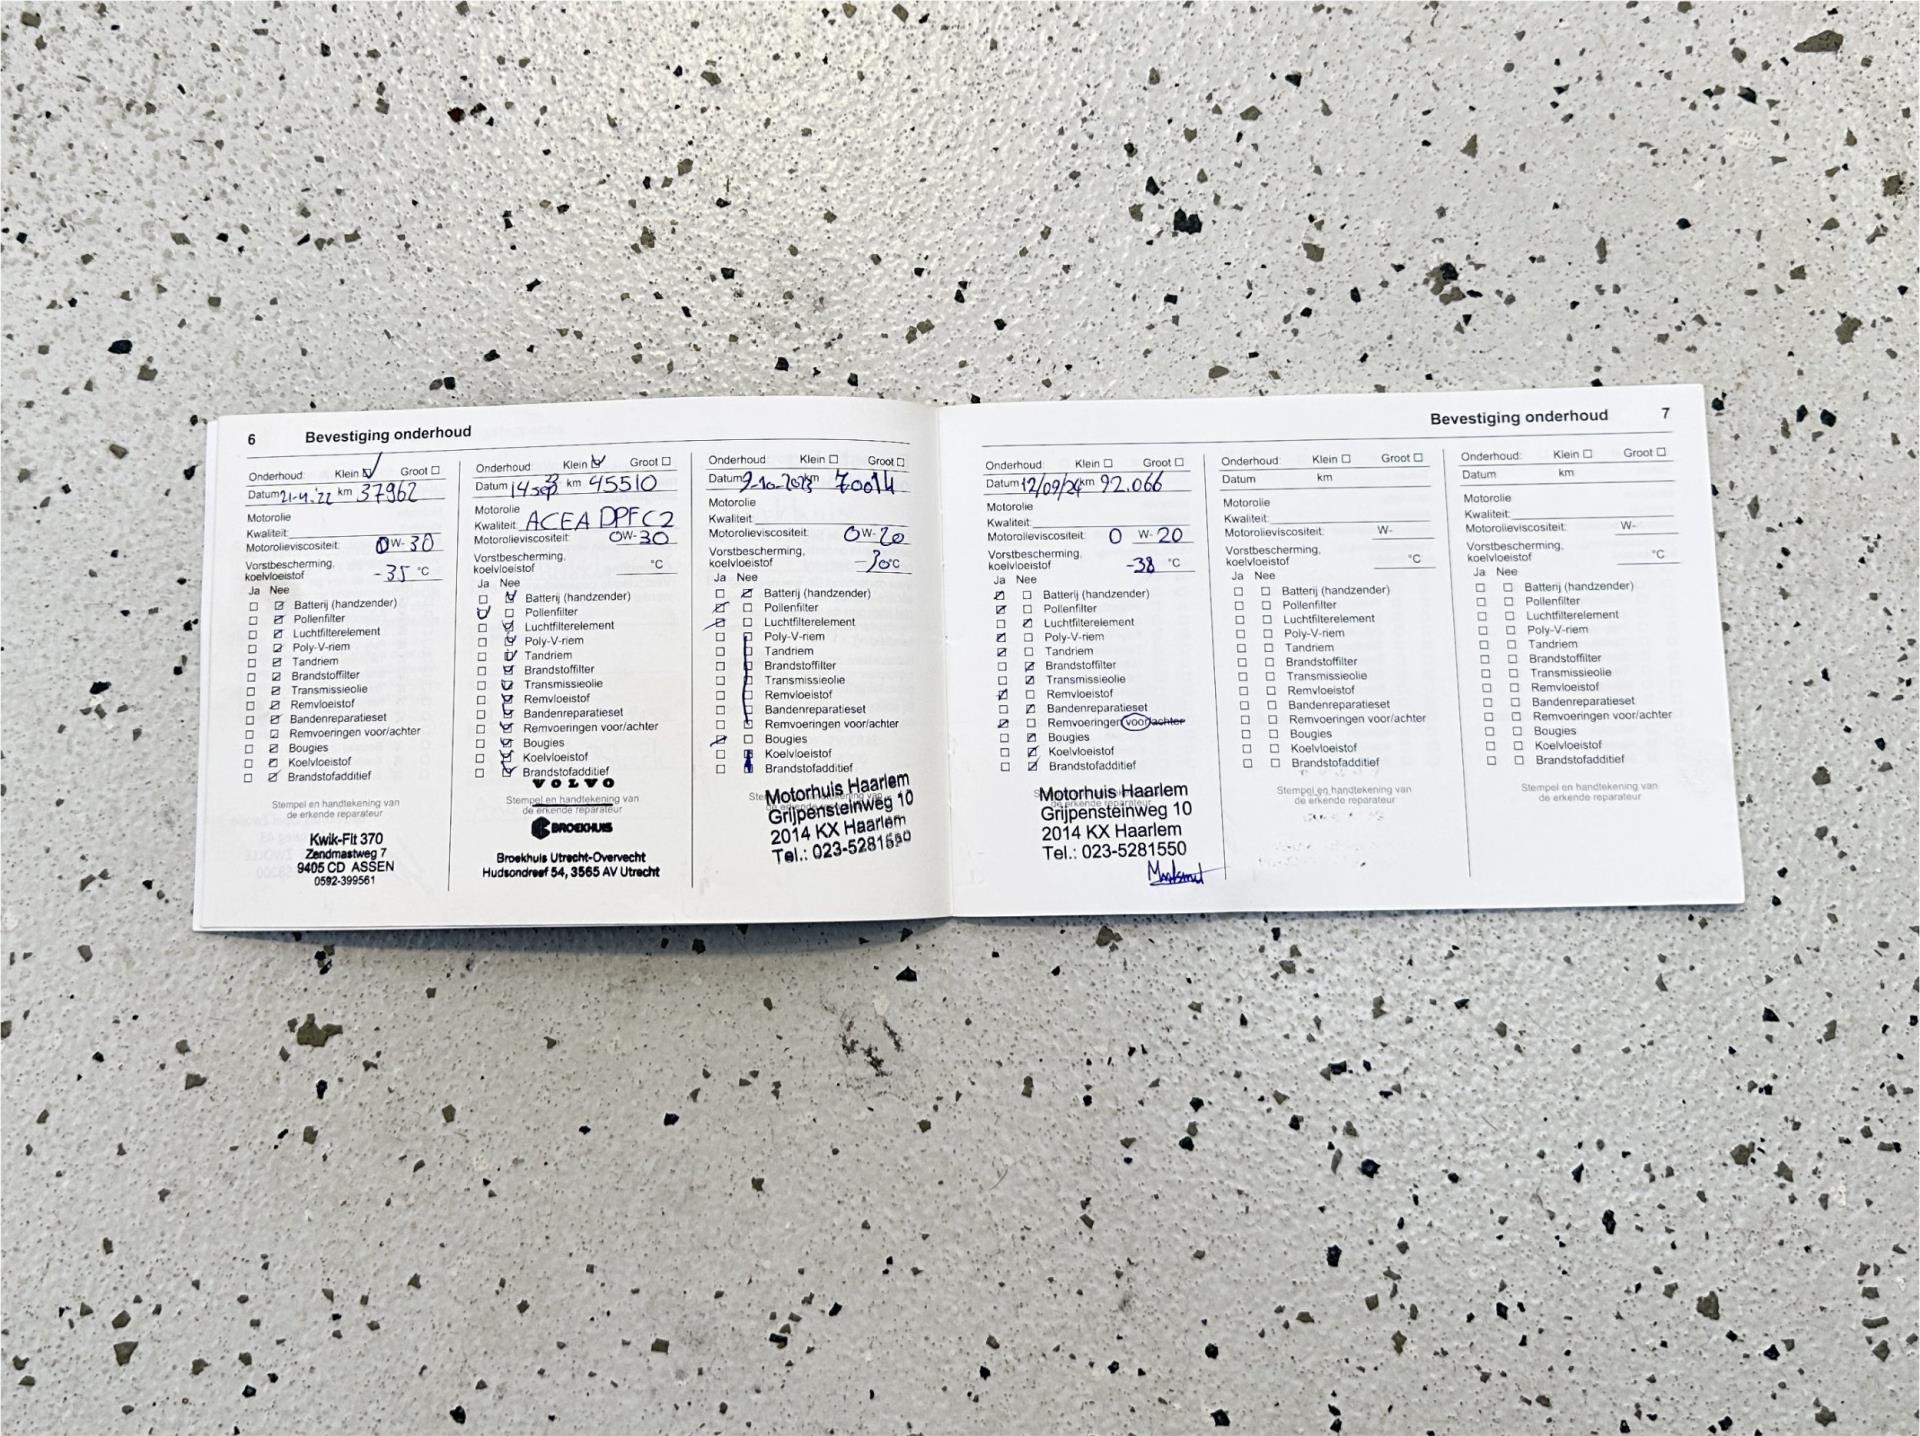 6 Bevestiging onderhoud
Onderhoud: Klein Groot
Datum 21-4-'22 km 37962
Motorolie
Kwaliteit:
Motorolieviscositeit: 0W-30
Vorstbescherming,
koelvloeistof -35 °C
Ja Nee
Batterij (handzender)
Pollenfilter
Luchtfilterelement
Poly-V-riem
Tandriem
Brandstoffilter
Transmissieolie
Remvloeistof
Bandenreparatieset
Remvoeringen voor/achter
Bougies
Koelvloeistof
Brandstofadditief
Stempel en handtekening van
de erkende reparateur
Kwik-Fit 370
Zendmastweg 7
9405 CD ASSEN
0592-399561
Onderhoud: Klein Groot
Datum 14 sep km 45510
Motorolie
Kwaliteit: ACEA DPF C2
Motorolieviscositeit: 0W-30
Vorstbescherming,
koelvloeistof °C
Ja Nee
Batterij (handzender)
Pollenfilter
Luchtfilterelement
Poly-V-riem
Tandriem
Brandstoffilter
Transmissieolie
Remvloeistof
Bandenreparatieset
Remvoeringen voor/achter
Bougies
Koelvloeistof
Brandstofadditief
VOLVO
Stempel en handtekening van
de erkende reparateur
BROEKHUIS
Broekhuis Utrecht-Overvecht
Hudsondreef 54, 3565 AV Utrecht
Onderhoud: Klein Groot
Datum 9-10-2023 km 70014
Motorolie
Kwaliteit:
Motorolieviscositeit: 0W-20
Vorstbescherming,
koelvloeistof -30°C
Ja Nee
Batterij (handzender)
Pollenfilter
Luchtfilterelement
Poly-V-riem
Tandriem
Brandstoffilter
Transmissieolie
Remvloeistof
Bandenreparatieset
Remvoeringen voor/achter
Bougies
Koelvloeistof
Brandstofadditief
Motorhuis Haarlem
Grijpensteinweg 10
2014 KX Haarlem
Tel.: 023-5281550
Bevestiging onderhoud 7
Onderhoud: Klein Groot
Datum 12/09/24 km 92.066
Motorolie
Kwaliteit:
Motorolieviscositeit: 0 W- 20
Vorstbescherming,
koelvloeistof -38 °C
Ja Nee
Batterij (handzender)
Pollenfilter
Luchtfilterelement
Poly-V-riem
Tandriem
Brandstoffilter
Transmissieolie
Remvloeistof
Bandenreparatieset
Remvoeringen voor/achter
Bougies
Koelvloeistof
Brandstofadditief
Motorhuis Haarlem
de erkende reparateur
Grijpensteinweg 10
2014 KX Haarlem
Tel.: 023-5281550
Onderhoud: Klein Groot
Datum km
Motorolie
Kwaliteit:
Motorolieviscositeit: W-
Vorstbescherming,
koelvloeistof °C
Ja Nee
Batterij (handzender)
Pollenfilter
Luchtfilterelement
Poly-V-riem
Tandriem
Brandstoffilter
Transmissieolie
Remvloeistof
Bandenreparatieset
Remvoeringen voor/achter
Bougies
Koelvloeistof
Brandstofadditief
Stempel en handtekening van
de erkende reparateur
Onderhoud: Klein Groot
Datum km
Motorolie
Kwaliteit:
Motorolieviscositeit: W-
Vorstbescherming,
koelvloeistof °C
Ja Nee
Batterij (handzender)
Pollenfilter
Luchtfilterelement
Poly-V-riem
Tandriem
Brandstoffilter
Transmissieolie
Remvloeistof
Bandenreparatieset
Remvoeringen voor/achter
Bougies
Koelvloeistof
Brandstofadditief
Stempel en handtekening van
de erkende reparateur